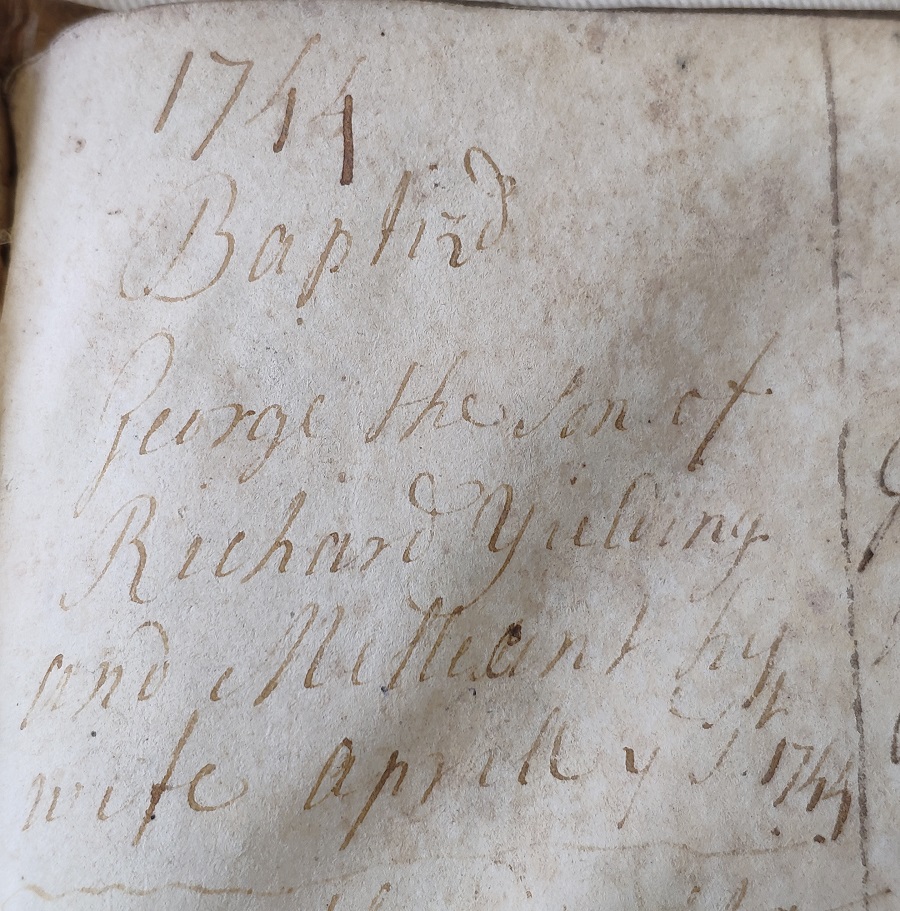 1744
Baptizd
George the Son of
Richard Yielding
and Millicent hys
wife aprill y 1 1744